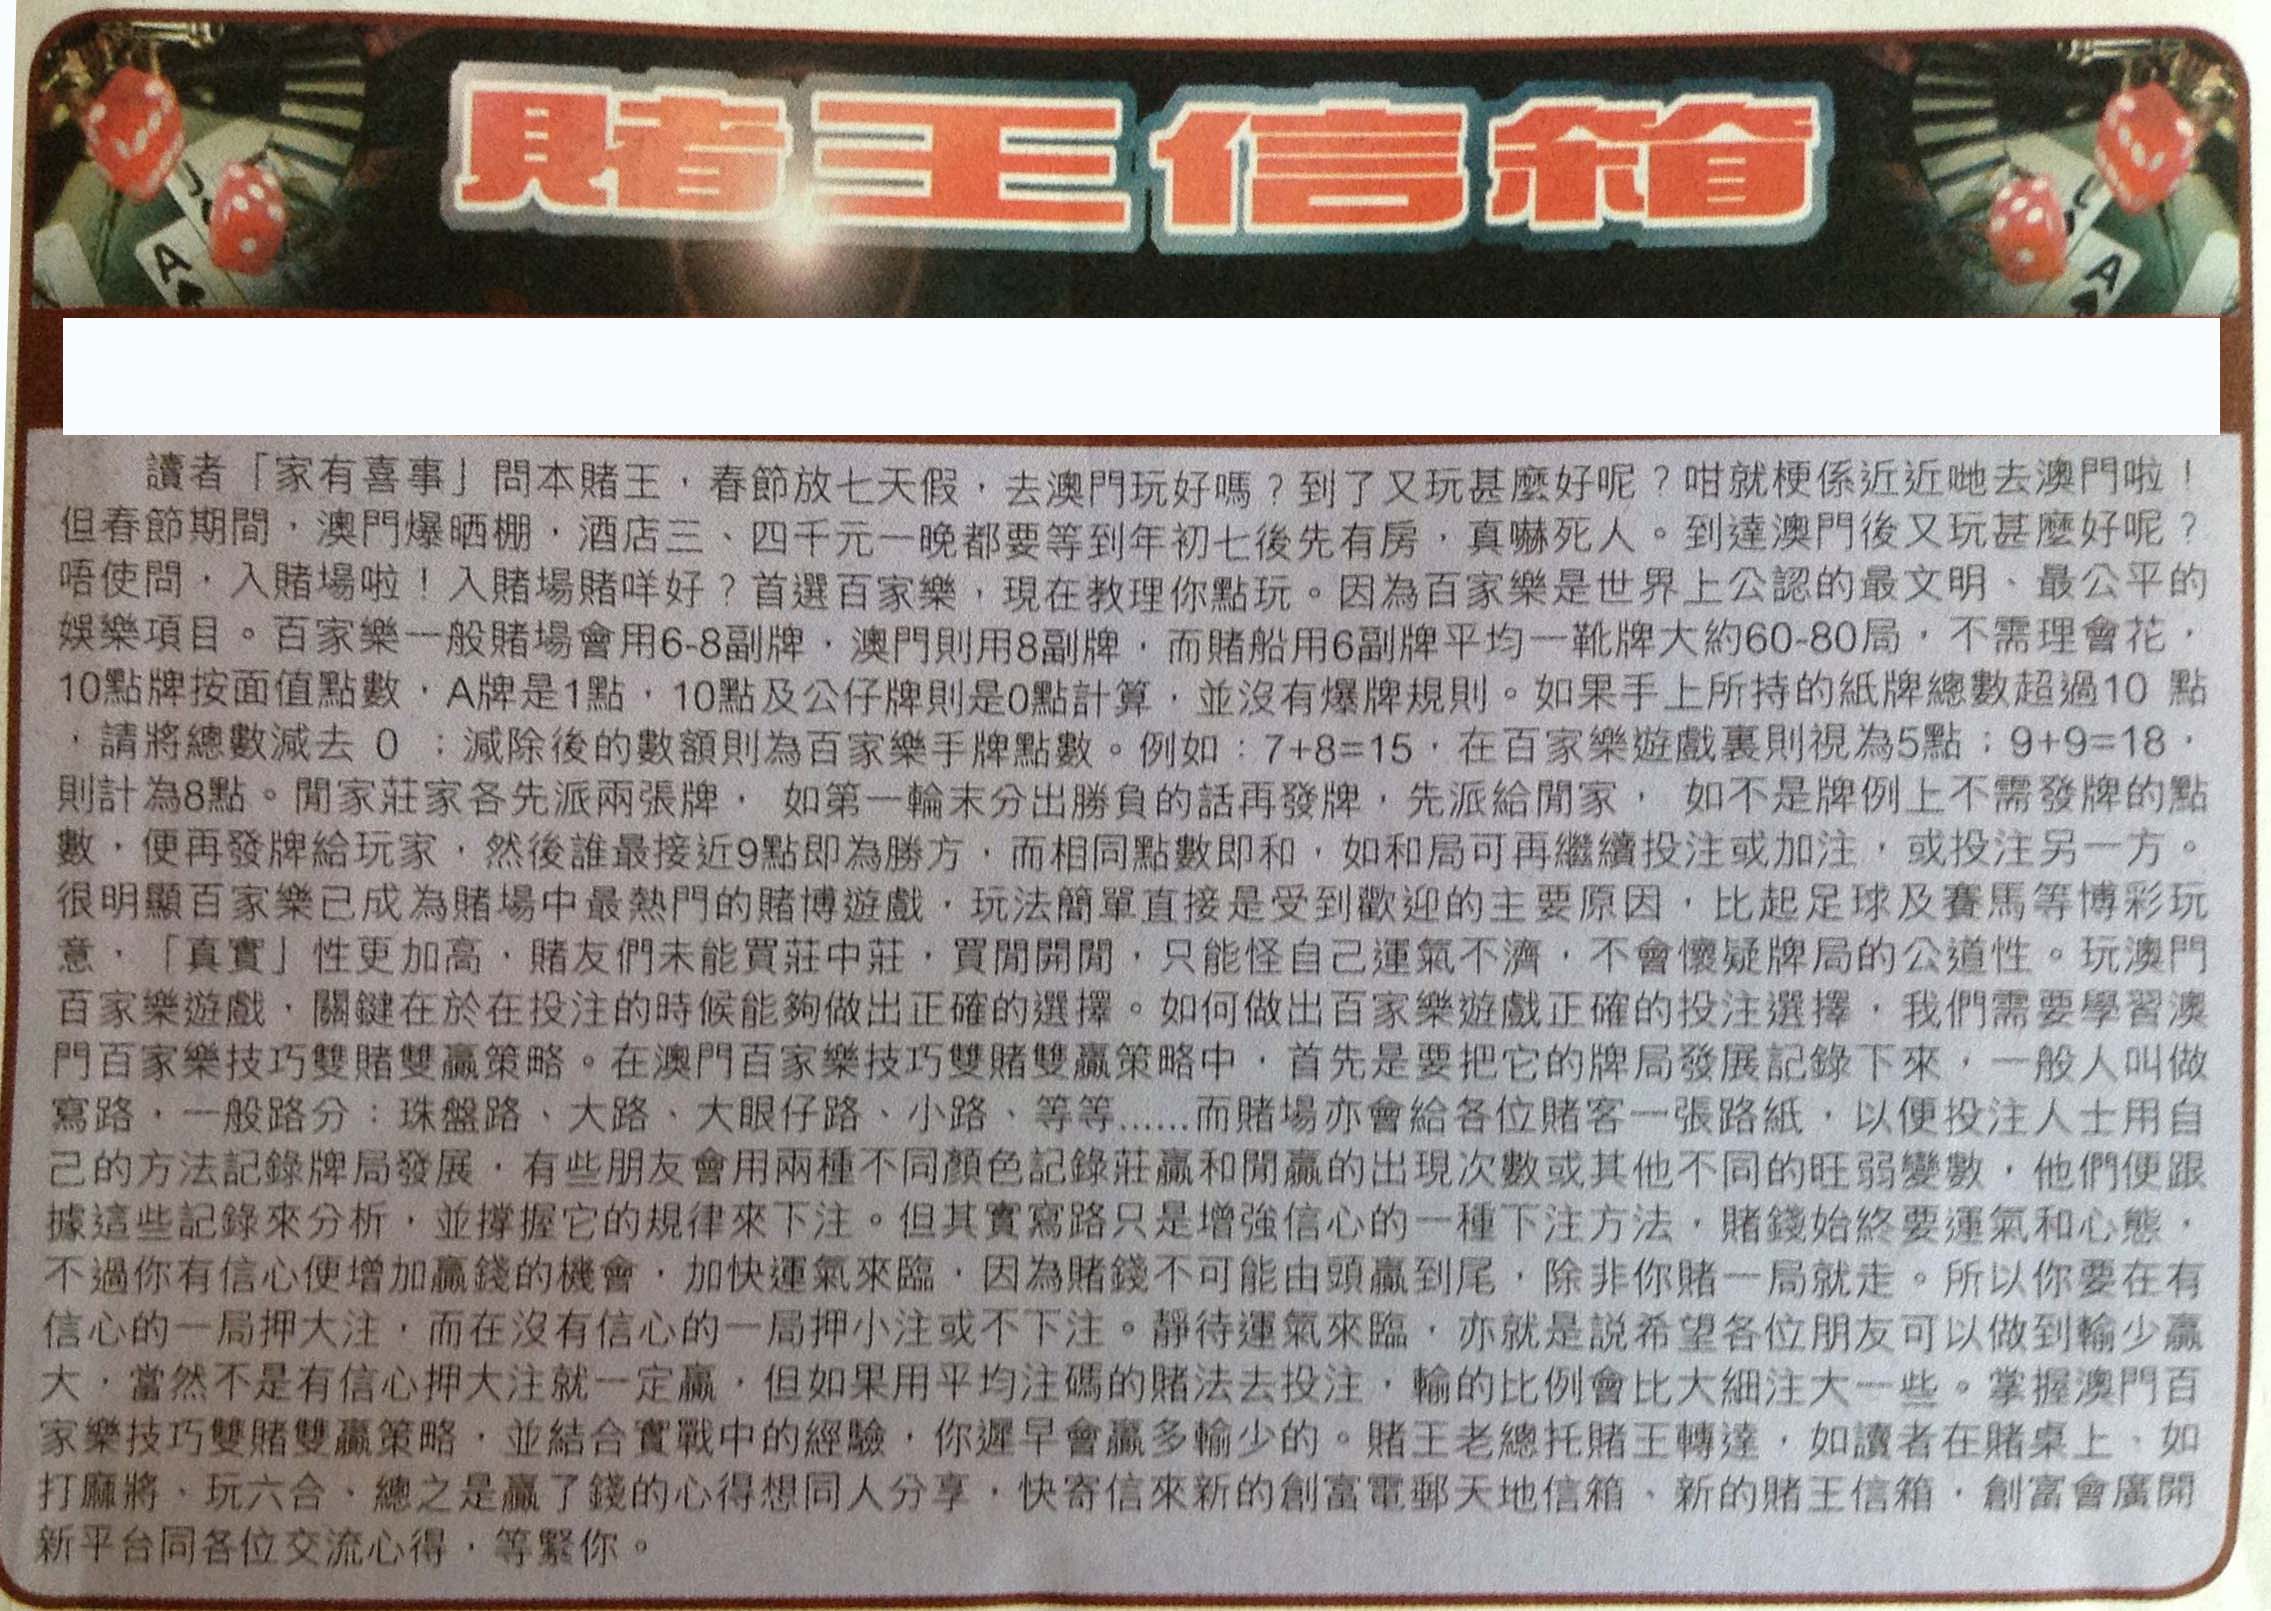 賭王信箱
讀者「家有喜事」問本賭王，春節放七天假，去澳門玩好嗎？到了又玩甚麼好呢？咁就梗係近近哋去澳門啦！
但春節期間，澳門爆晒棚，酒店三、四千元一晚都要等到年初七後先有房，真嚇死人。到達澳門後又玩甚麼好呢？
唔使問，入賭場啦！入賭場賭咩好？首選百家樂，現在教理你點玩。因為百家樂是世界上公認的最文明、最公平的
娛樂項目。百家樂一般賭場會用6-8副牌，澳門則用8副牌，而賭船用6副牌平均一靴牌大約60-80局，不需理會花，
10點牌按面值點數，A牌是1點，10點及公仔牌則是0點計算，並沒有爆牌規則。如果手上所持的紙牌總數超過10 點
，請將總數減去 0 ；減除後的數額則為百家樂手牌點數。例如：7+8=15，在百家樂遊戲裏則視為5點；9+9=18，
則計為8點。閒家莊家各先派兩張牌， 如第一輪末分出勝負的話再發牌，先派給閒家， 如不是牌例上不需發牌的點
數，便再發牌給玩家，然後誰最接近9點即為勝方，而相同點數即和，如和局可再繼續投注或加注，或投注另一方。
很明顯百家樂已成為賭場中最熱門的賭博遊戲，玩法簡單直接是受到歡迎的主要原因，比起足球及賽馬等博彩玩
意，「真實」性更加高，賭友們未能買莊中莊，買閒開閒，只能怪自己運氣不濟，不會懷疑牌局的公道性。玩澳門
百家樂遊戲，關鍵在於在投注的時候能夠做出正確的選擇。如何做出百家樂遊戲正確的投注選擇，我們需要學習澳
門百家樂技巧雙賭雙贏策略。在澳門百家樂技巧雙賭雙贏策略中，首先是要把它的牌局發展記錄下來，一般人叫做
寫路，一般路分：珠盤路、大路、大眼仔路、小路、等等......而賭場亦會給各位賭客一張路紙，以便投注人士用自
己的方法記錄牌局發展，有些朋友會用兩種不同顏色記錄莊贏和閒贏的出現次數或其他不同的旺弱變數，他們便跟
據這些記錄來分析，並撐握它的規律來下注。但其實寫路只是增強信心的一種下注方法，賭錢始終要運氣和心態，
不過你有信心便增加贏錢的機會，加快運氣來臨，因為賭錢不可能由頭贏到尾，除非你賭一局就走。所以你要在有
信心的一局押大注，而在沒有信心的一局押小注或不下注。靜待運氣來臨，亦就是説希望各位朋友可以做到輸少贏
大，當然不是有信心押大注就一定贏，但如果用平均注碼的賭法去投注，輸的比例會比大細注大一些。掌握澳門百
家樂技巧雙賭雙贏策略，並結合實戰中的經驗，你遲早會贏多輸少的。賭王老總托賭王轉達，如讀者在賭桌上、如
打麻將、玩六合、總之是贏了錢的心得想同人分享，快寄信來新的創富電郵天地信箱、新的賭王信箱，創富會廣開
新平台同各位交流心得，等緊你。